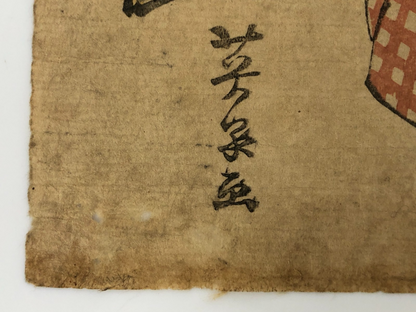 英泉画